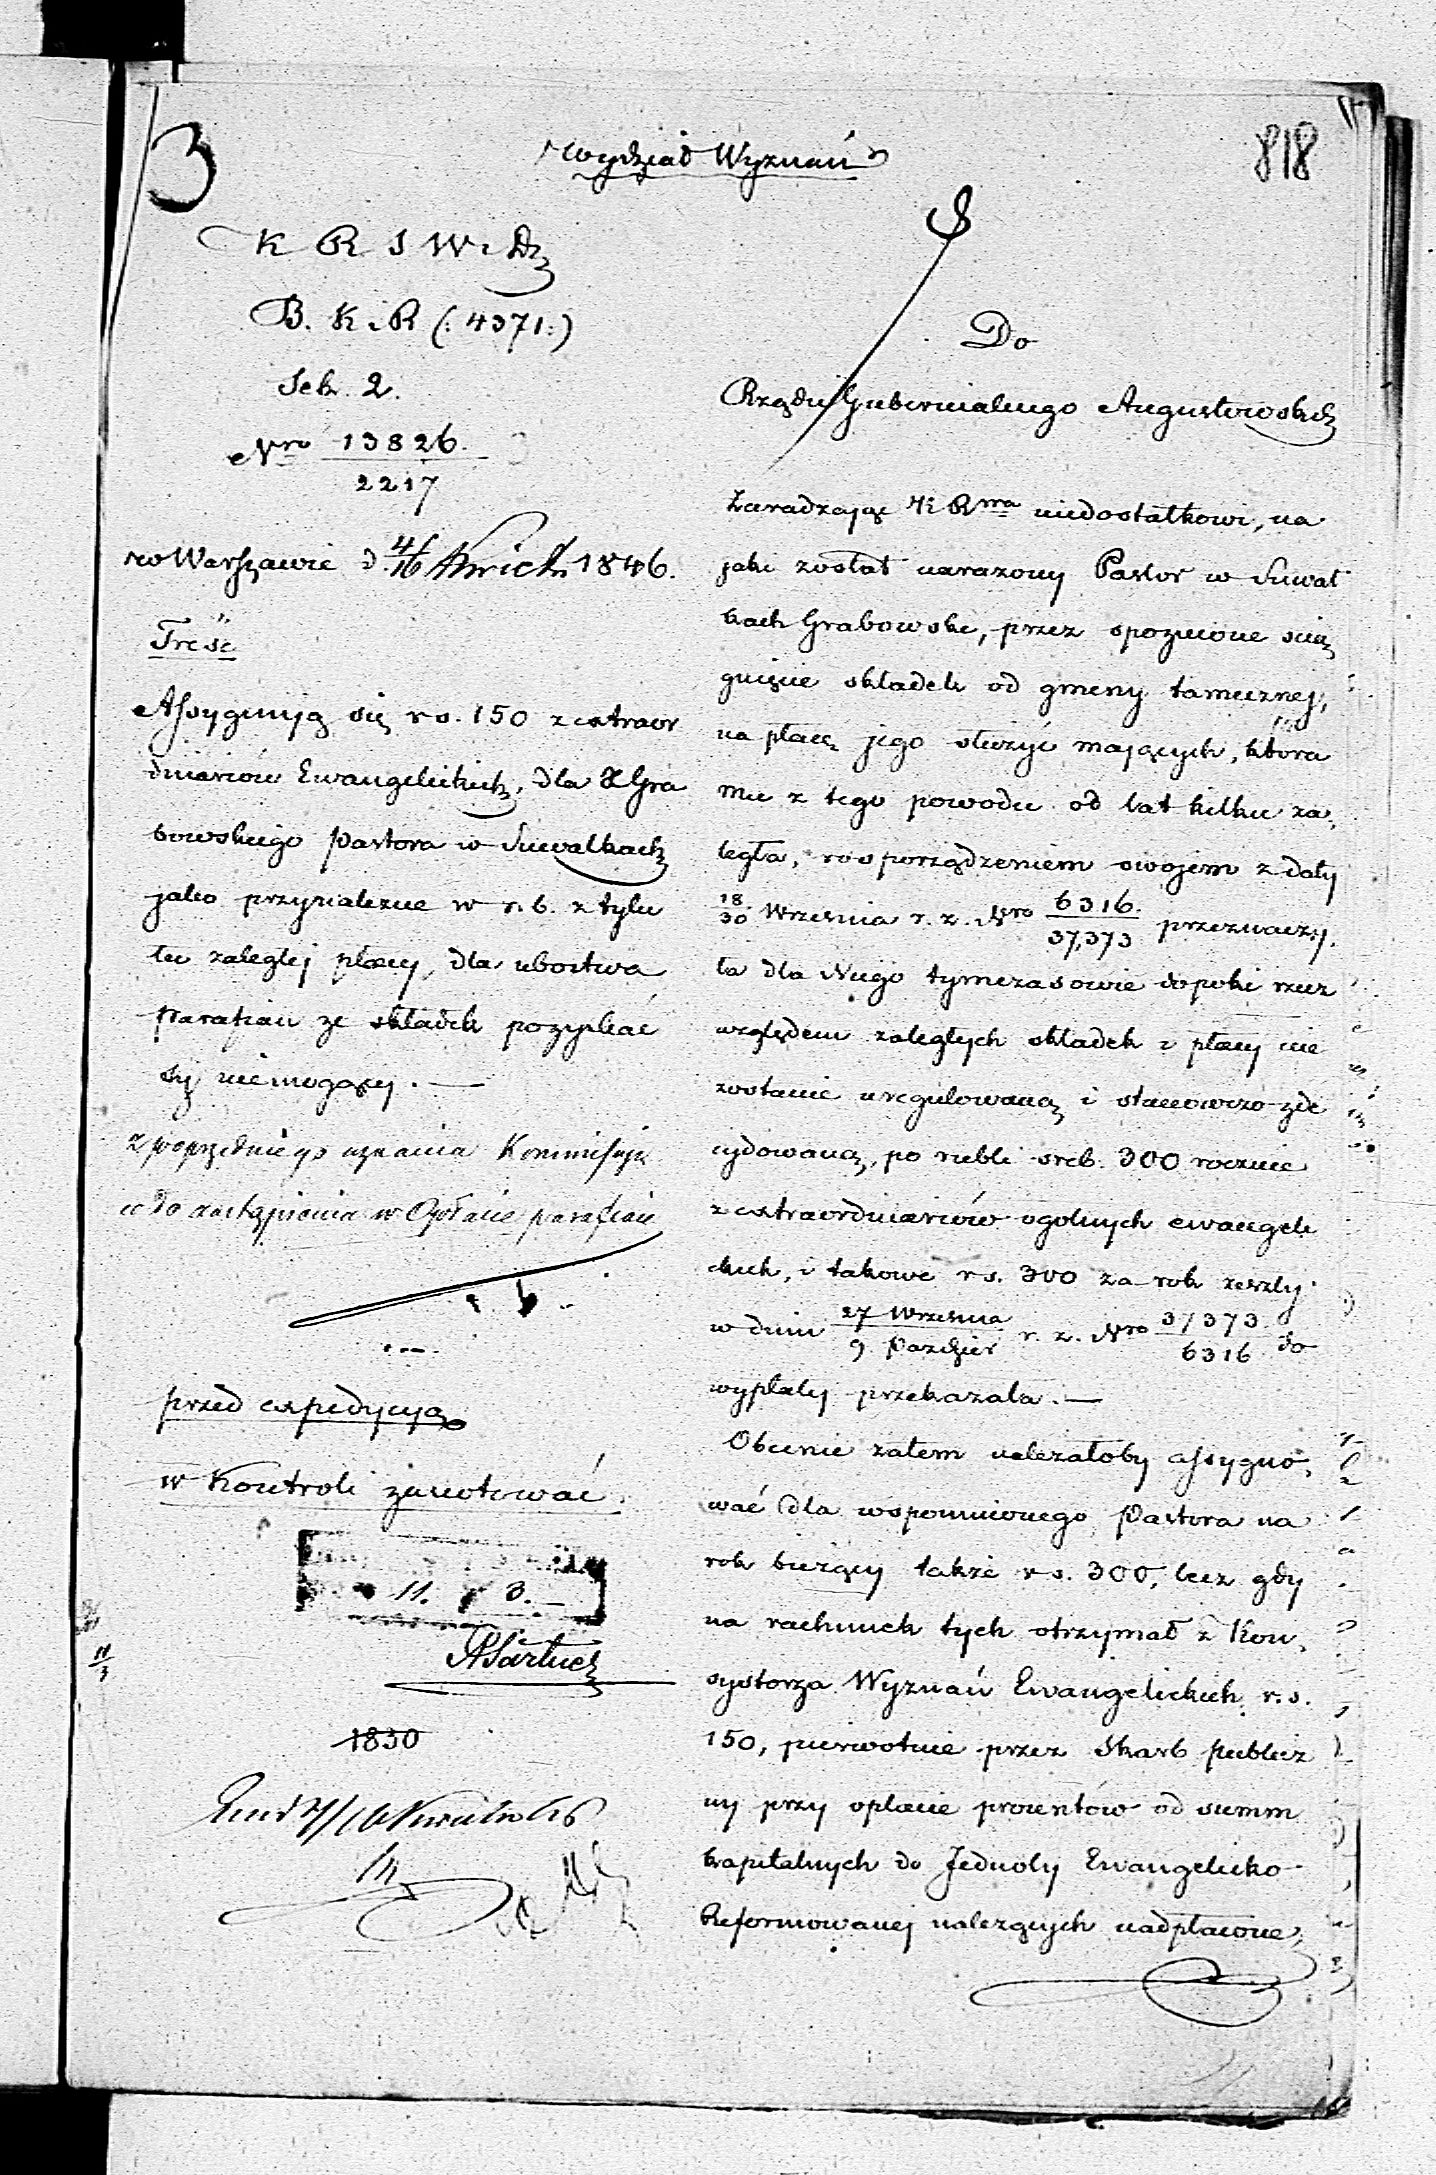 3
818
Wydział Wyznań
K R S W i D
B. K i R (: 4371:)
Sek. 2.
Nro 13826.
2217
w Warszawie d. 4/16 Kwietn 1846.
Treść
Assygnuią się rs. 150 z extraor
dinariów Ewangelickich, dla X Gra
bowskiego Pastora w Suwałkach
jako przynależne w r. b. z tytu
łu zaległej płacy, dla ubostwa
Parafian ze składek pozyskać
się niemogącej. —
z poprzedniego uznania Kommissyi
co do zastąpienia w Opłacie parafian
przed expedycyą
w Kontroli zanotować.
11. 3.
11/3
1830
Do
Rządu Gubernialnego Augustowskie
Zaradzając K: Rwa niedostatkowi, na
jaki został narażony Pastor w Suwał
kach Grabowski, przez spóznione ścią
gnięcie składek od gminy tamecznej,
na płacę jego służyć mających, która
mu z tego powodu od lat kilku za,
legła, rosporządzeniem swojem z daty
18/30 Września r. z. Nro 6316./37,373 przeznaczy,
ła dla Niego tymczasowie dopoki rzecz
względem zaległych składek i płacy nie
zostanie uregulowaną i stanowczo zde
cydowaną, po rubli sreb. 300 rocznie
z extraordinariów ogolnych ewangeli
ckich, i takowe rs. 300 za rok zeszły
w dniu 27 Września/9 Paździer r. z. Nro 37373/6316 do
wypłaty przekazała. —
Obecnie zatem należałoby assygno,
wać dla wspomnionego Pastora na
rok bieżący także rs. 300, lecz gdy
na rachunek tych otrzymał z Kon,
systorza Wyznań Ewangelickich r. s.
150, pierwotnie przez Skarb publicz
ny przy opłacie procentów od summ
kapitalnych do Jednoty Ewangelicko
Reformowanej należących nadpłacone,